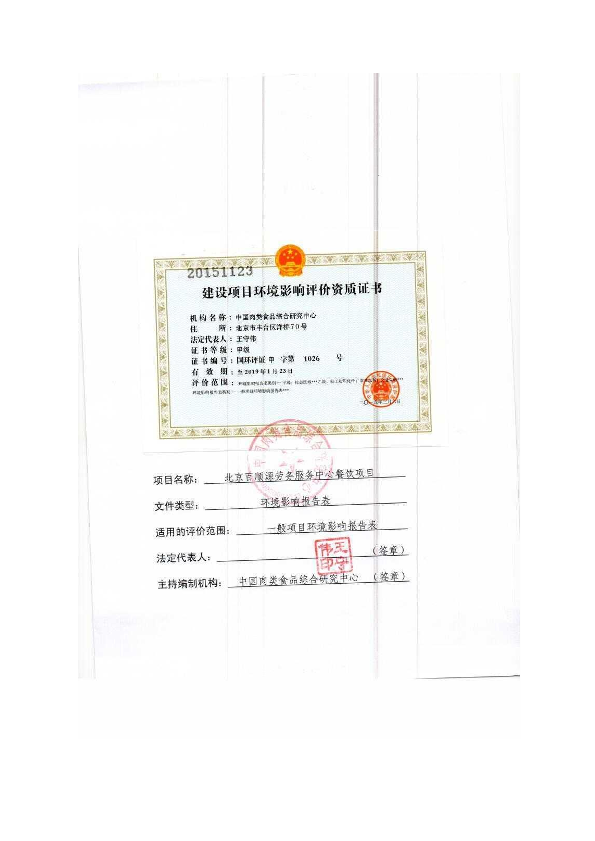 20151123
建设项目环境影响评价资质证书
机构名称：中国肉类食品综合研究中心
住 所：北京市丰台区洋桥70号
法定代表人：王守伟
证书等级：甲级
证书编号：国环评证 甲 字第 1026 号
有 效 期：至2019年1月23日
评价范围：
项目名称： 北京百顺源劳务服务中心餐饮项目
文件类型： 环境影响报告表
适用的评价范围： 一般项目环境影响报告表
法定代表人： （签章）
王守伟印
主持编制机构： 中国肉类食品综合研究中心 （签章）